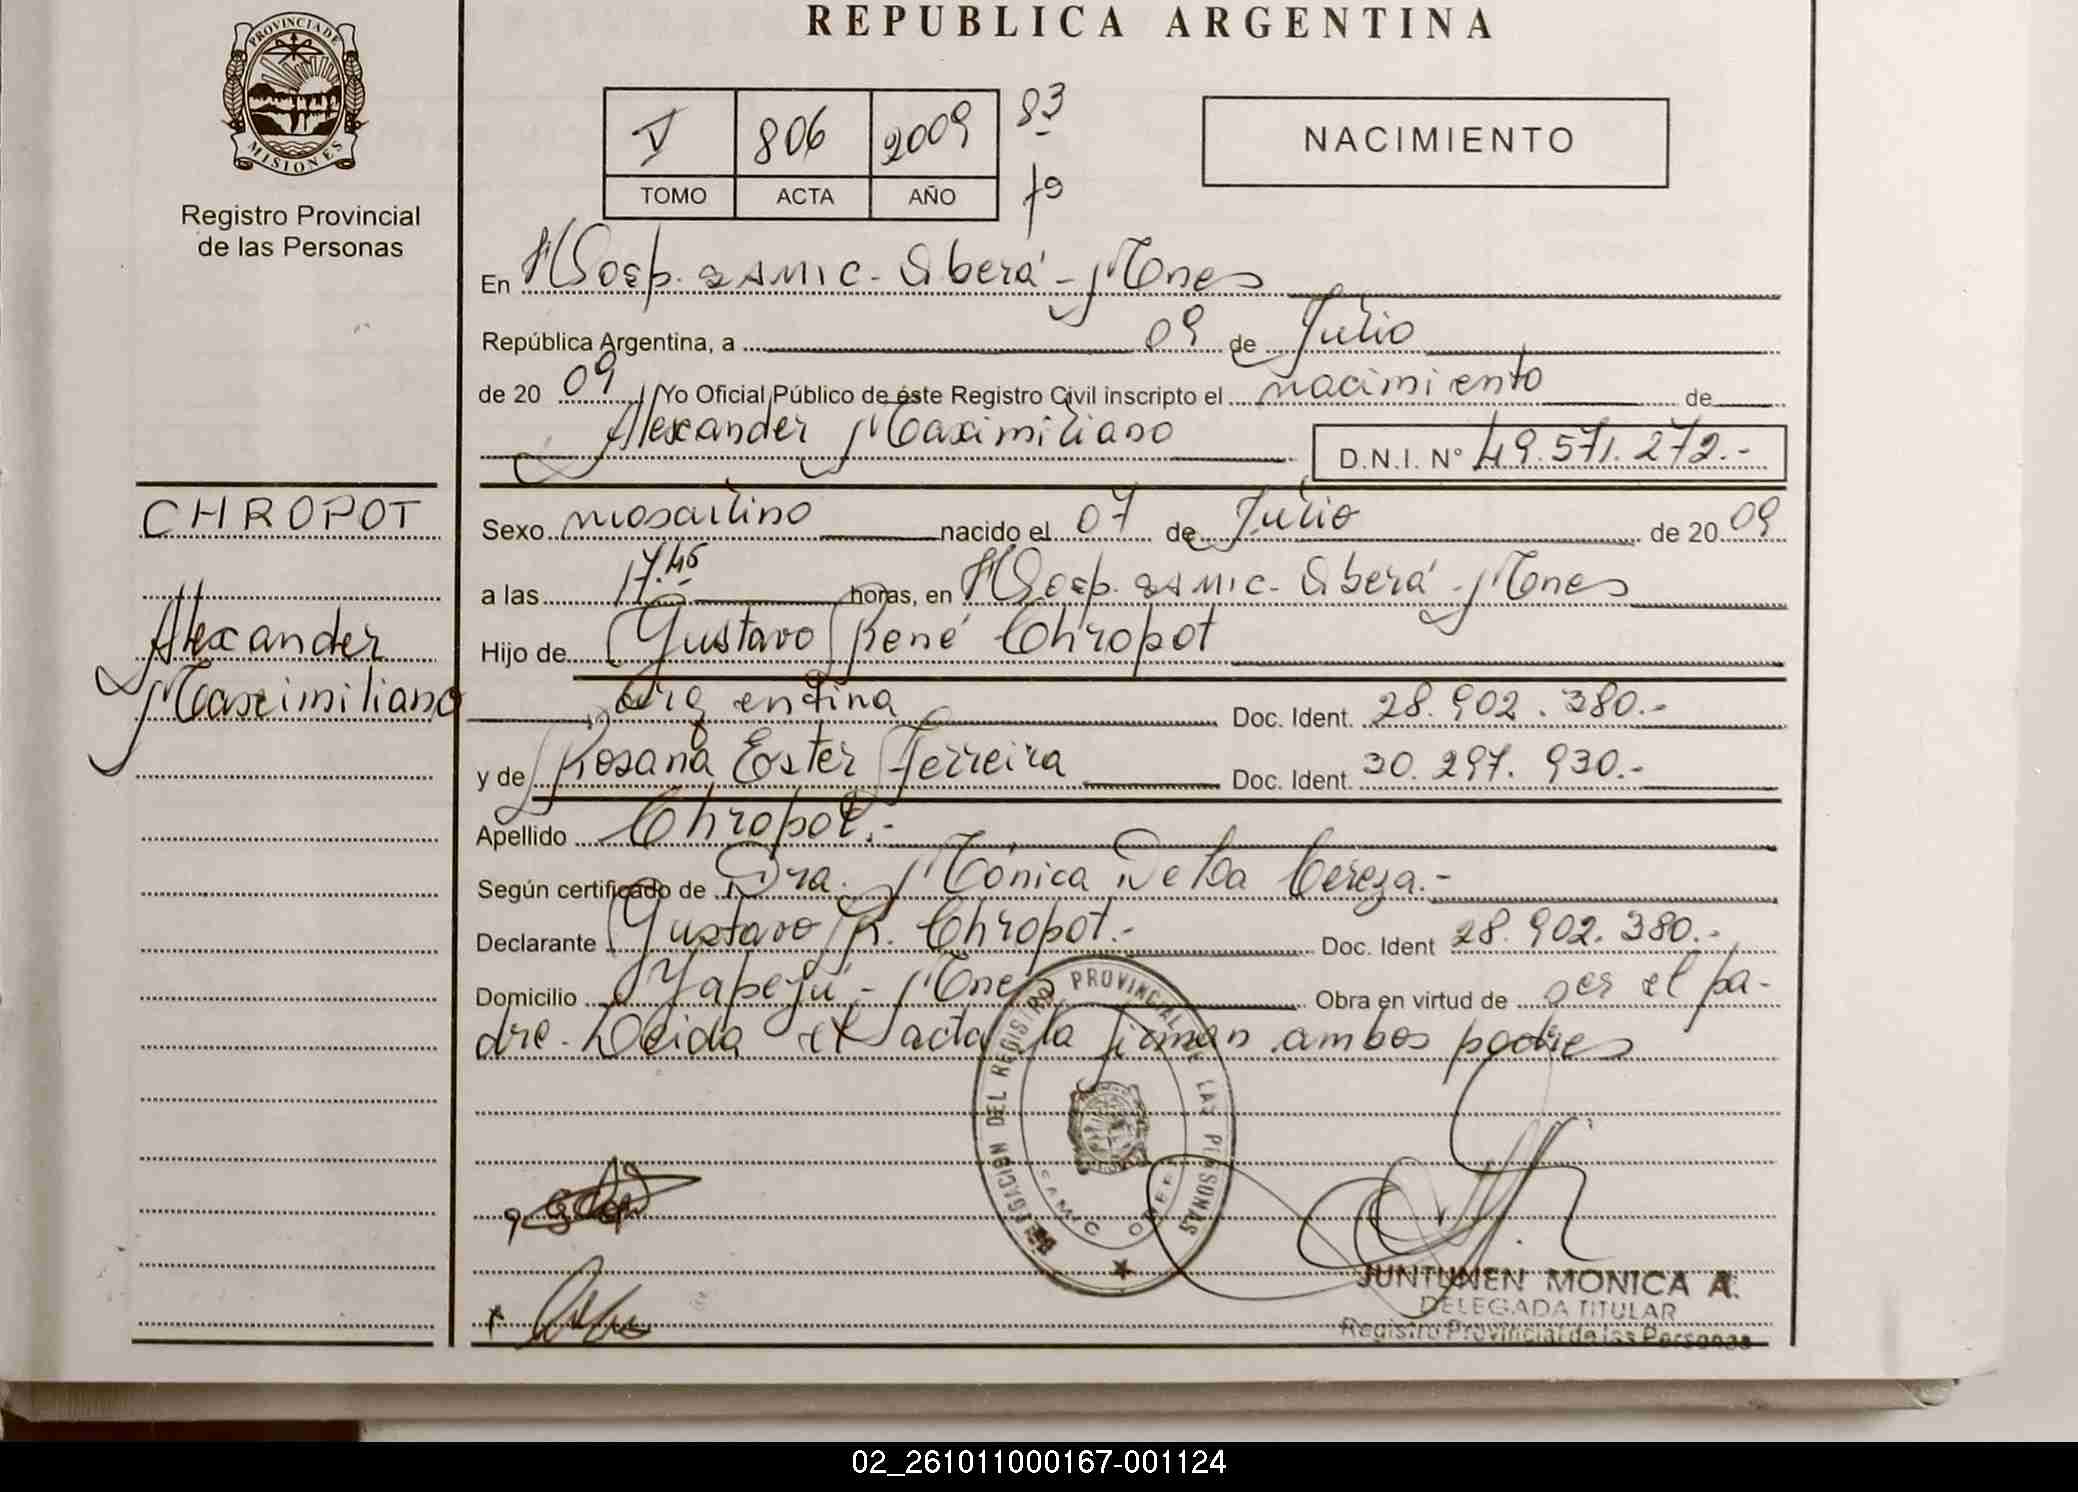 REPUBLICA ARGENTINA
PROVINCIA DE
MISIONES
Registro Provincial
de las Personas
V 806 2009 83
TOMO ACTA AÑO fº
NACIMIENTO
En Hosp. SAMIC - Oberá - Mnes
República Argentina, a 09 de Julio
de 20 09 Yo Oficial Público de éste Registro Civil inscripto el nacimiento de
Alexander Maximiliano D.N.I. N° 49.571.272.-
CHROPOT
Alexander
Maximiliano
Sexo masculino nacido el 07 de Julio de 20 09
a las 17.45 horas, en Hosp. SAMIC - Oberá - Mnes
Hijo de Gustavo René Chropot
argentina Doc. Ident. 28.902.380.-
y de Rosana Ester Ferreira Doc. Ident. 30.297.930.-
Apellido Chropot.-
Según certificado de Dra. Mónica De La Cereza.-
Declarante Gustavo R. Chropot.- Doc. Ident 28.902.380.-
Domicilio Yapeyú - Mnes Obra en virtud de ser el pa-
dre. Leida el acta la firman ambos padres
DELEGACIÓN DEL REGISTRO PROVINCIAL DE LAS PERSONAS
SAMIC
JUNTUNEN MONICA A.
DELEGADA TITULAR
Registro Provincial de las Personas
02_261011000167-001124